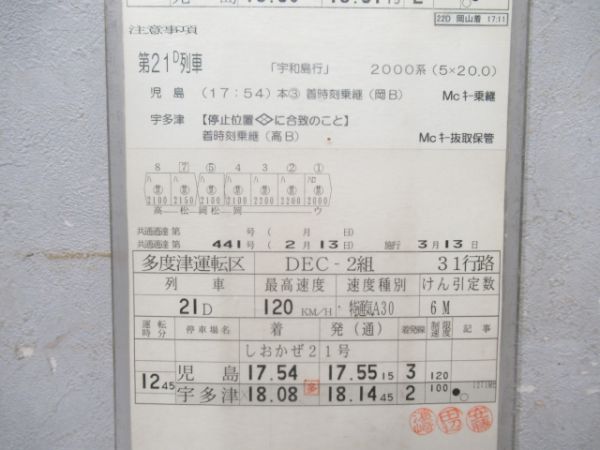 22D 岡山着 17:11
注意事項
第21D列車 「宇和島行」 2000系(5×20.0)
児島 (17:54) 本③ 着時刻乗継(岡B) Mcキー乗継
宇多津 【停止位置◇に合致のこと】
着時刻乗継(高B) Mcキー抜取保管
8 ⑦ ⑤ 4 3 2 ①
2100 2150 2100 2100 2200 2000
高―松岡松―岡――ウ
共通通達 第 号 ( 月 日)
共通通達 第 441号 (2月13日) 施行 3月13日
多度津運転区 DEC-2組 31行路
列車 最高速度 速度種別 けん引定数
21D 120 KM/H 特通気A30 6M
運転時分 停車場名 着 発(通) 着発線 制限速度 記事
しおかぜ21号
児島 17.54 17.55 15 3 120
12 45 宇多津 18.08 多 18.14 45 2 100